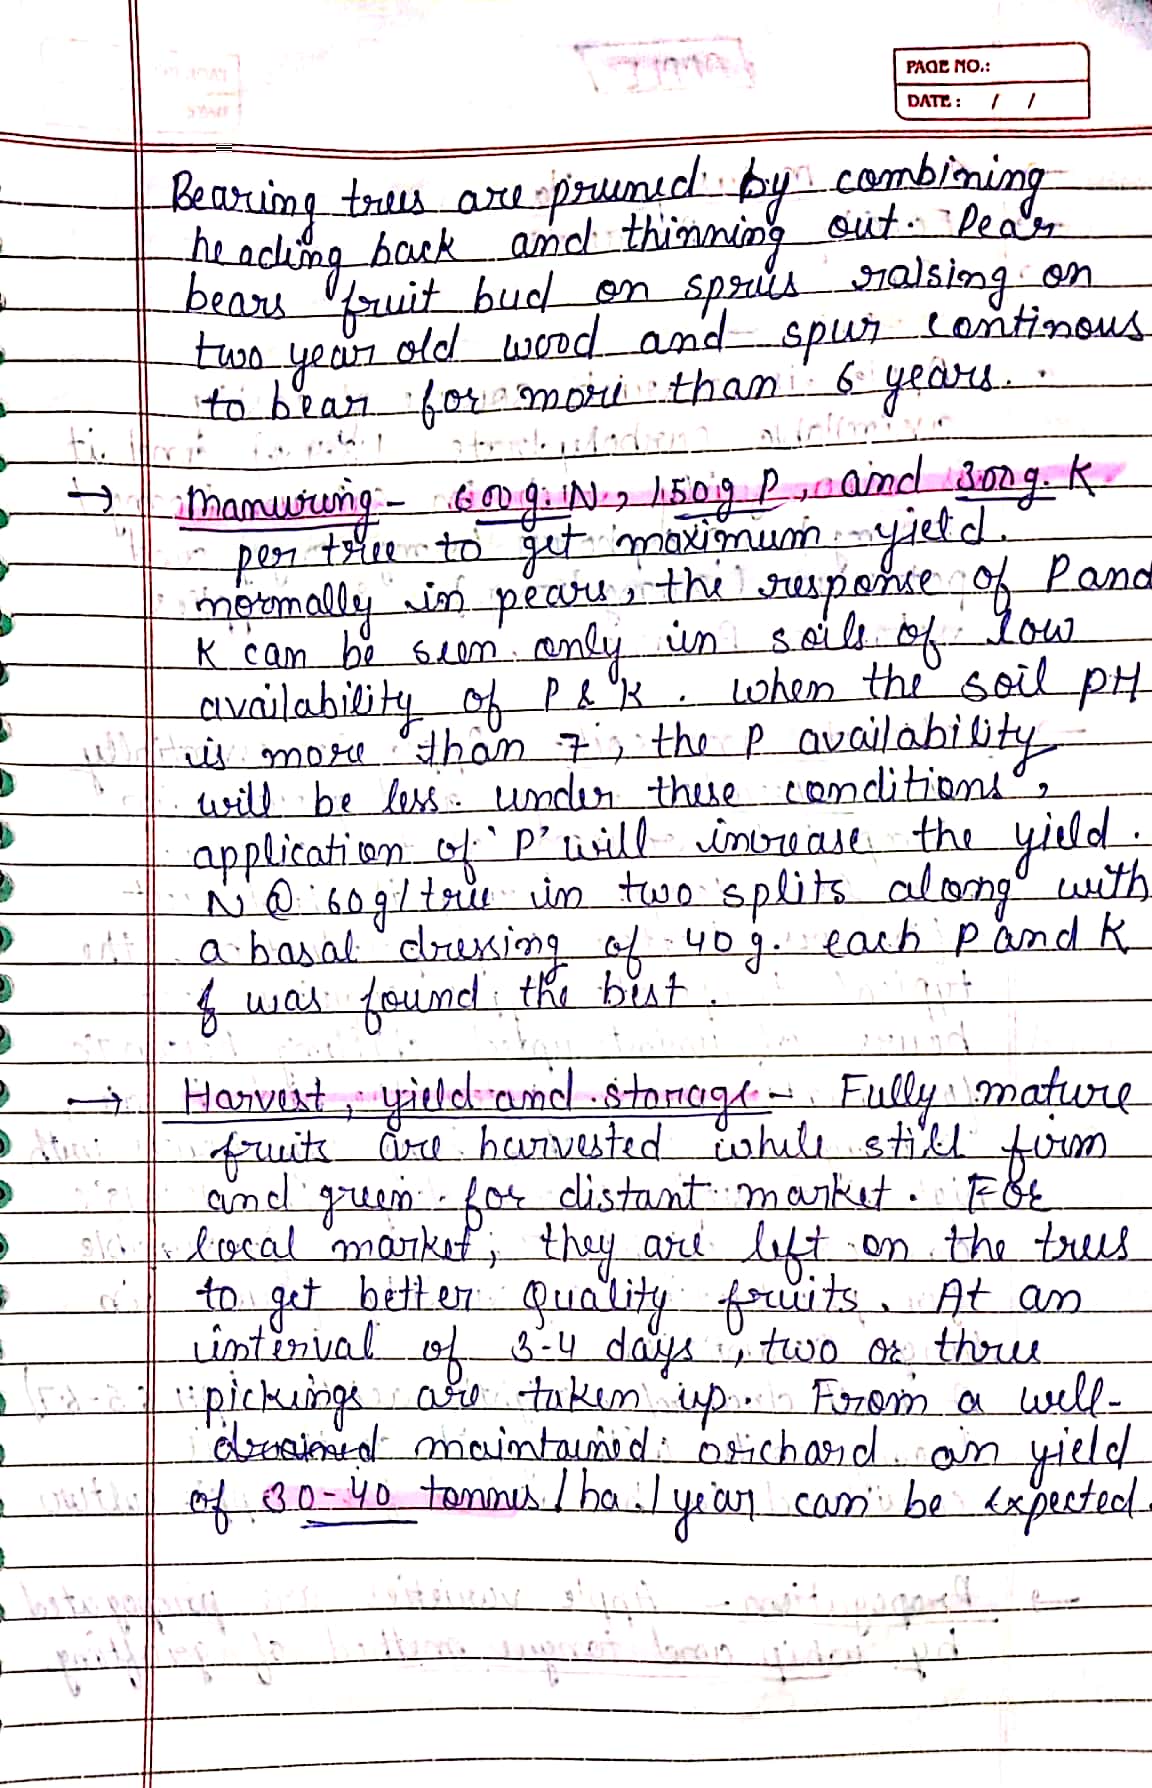 PAGE NO.:
DATE: / /
Bearing trees are pruned by combining
heading back and thinning out. Pear
bears fruit bud on spurs raising on
two year old wood and spur continous
to bear for more than 6 years.
→ Manuring - 600g. N, 150g P, and 300g. K
per tree to get maximum yield.
normally in pears, the response of P and
K can be seen only in soils of low
availability of P & K. When the soil pH
is more than 7, the P availability
will be less. under these conditions,
application of 'P' will increase the yield.
N @ 60g/tree in two splits along with
a basal dressing of 40g. each P and K
was found the best.
→ Harvest, yield and storage - Fully mature
fruits are harvested while still firm
and green for distant market. For
local market, they are left on the trees
to get better quality fruits. At an
interval of 3-4 days, two or three
pickings are taken up. From a well-
drained maintained orchard an yield
of 30-40 tonnes/ha./year can be expected.